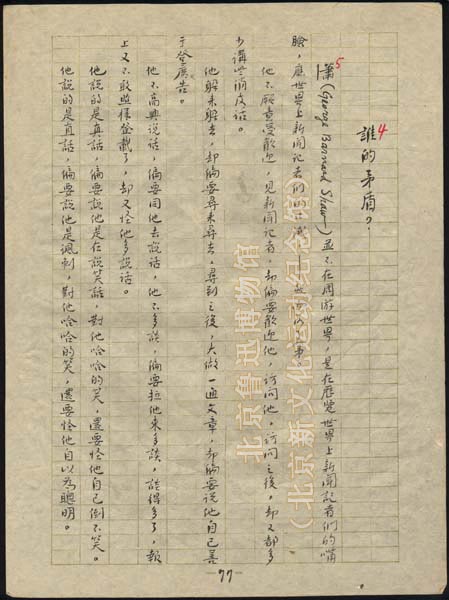 4
誰的矛盾?
5
蕭(George Bernard Shaw)並不在周游世界,是在歷覽世界上新聞記者們的嘴
臉,應世界上新聞記者們的口試,——然而落了第。
他不願意受歡迎,見新聞記者,却偏要歡迎他,訪問他,訪問之後,却又都多
少講些俏皮話。
他躲來躲去,却偏要尋來尋去,尋到之後,大做一通文章,却偏要說他自己善
于登廣告。
他不高興說話,偏要同他去說話,他不多談,偏要拉他來多談,談得多了,報
上又不敢照樣登載了,却又怪他多說話。
他說的是真話,偏要說他是在說笑話,對他哈哈的笑,還要怪他自己倒不笑。
他說的是直話,偏要說他是諷刺,對他哈哈的笑,還要怪他自以為聰明。
77
北京鲁迅博物馆
(北京新文化运动纪念馆)